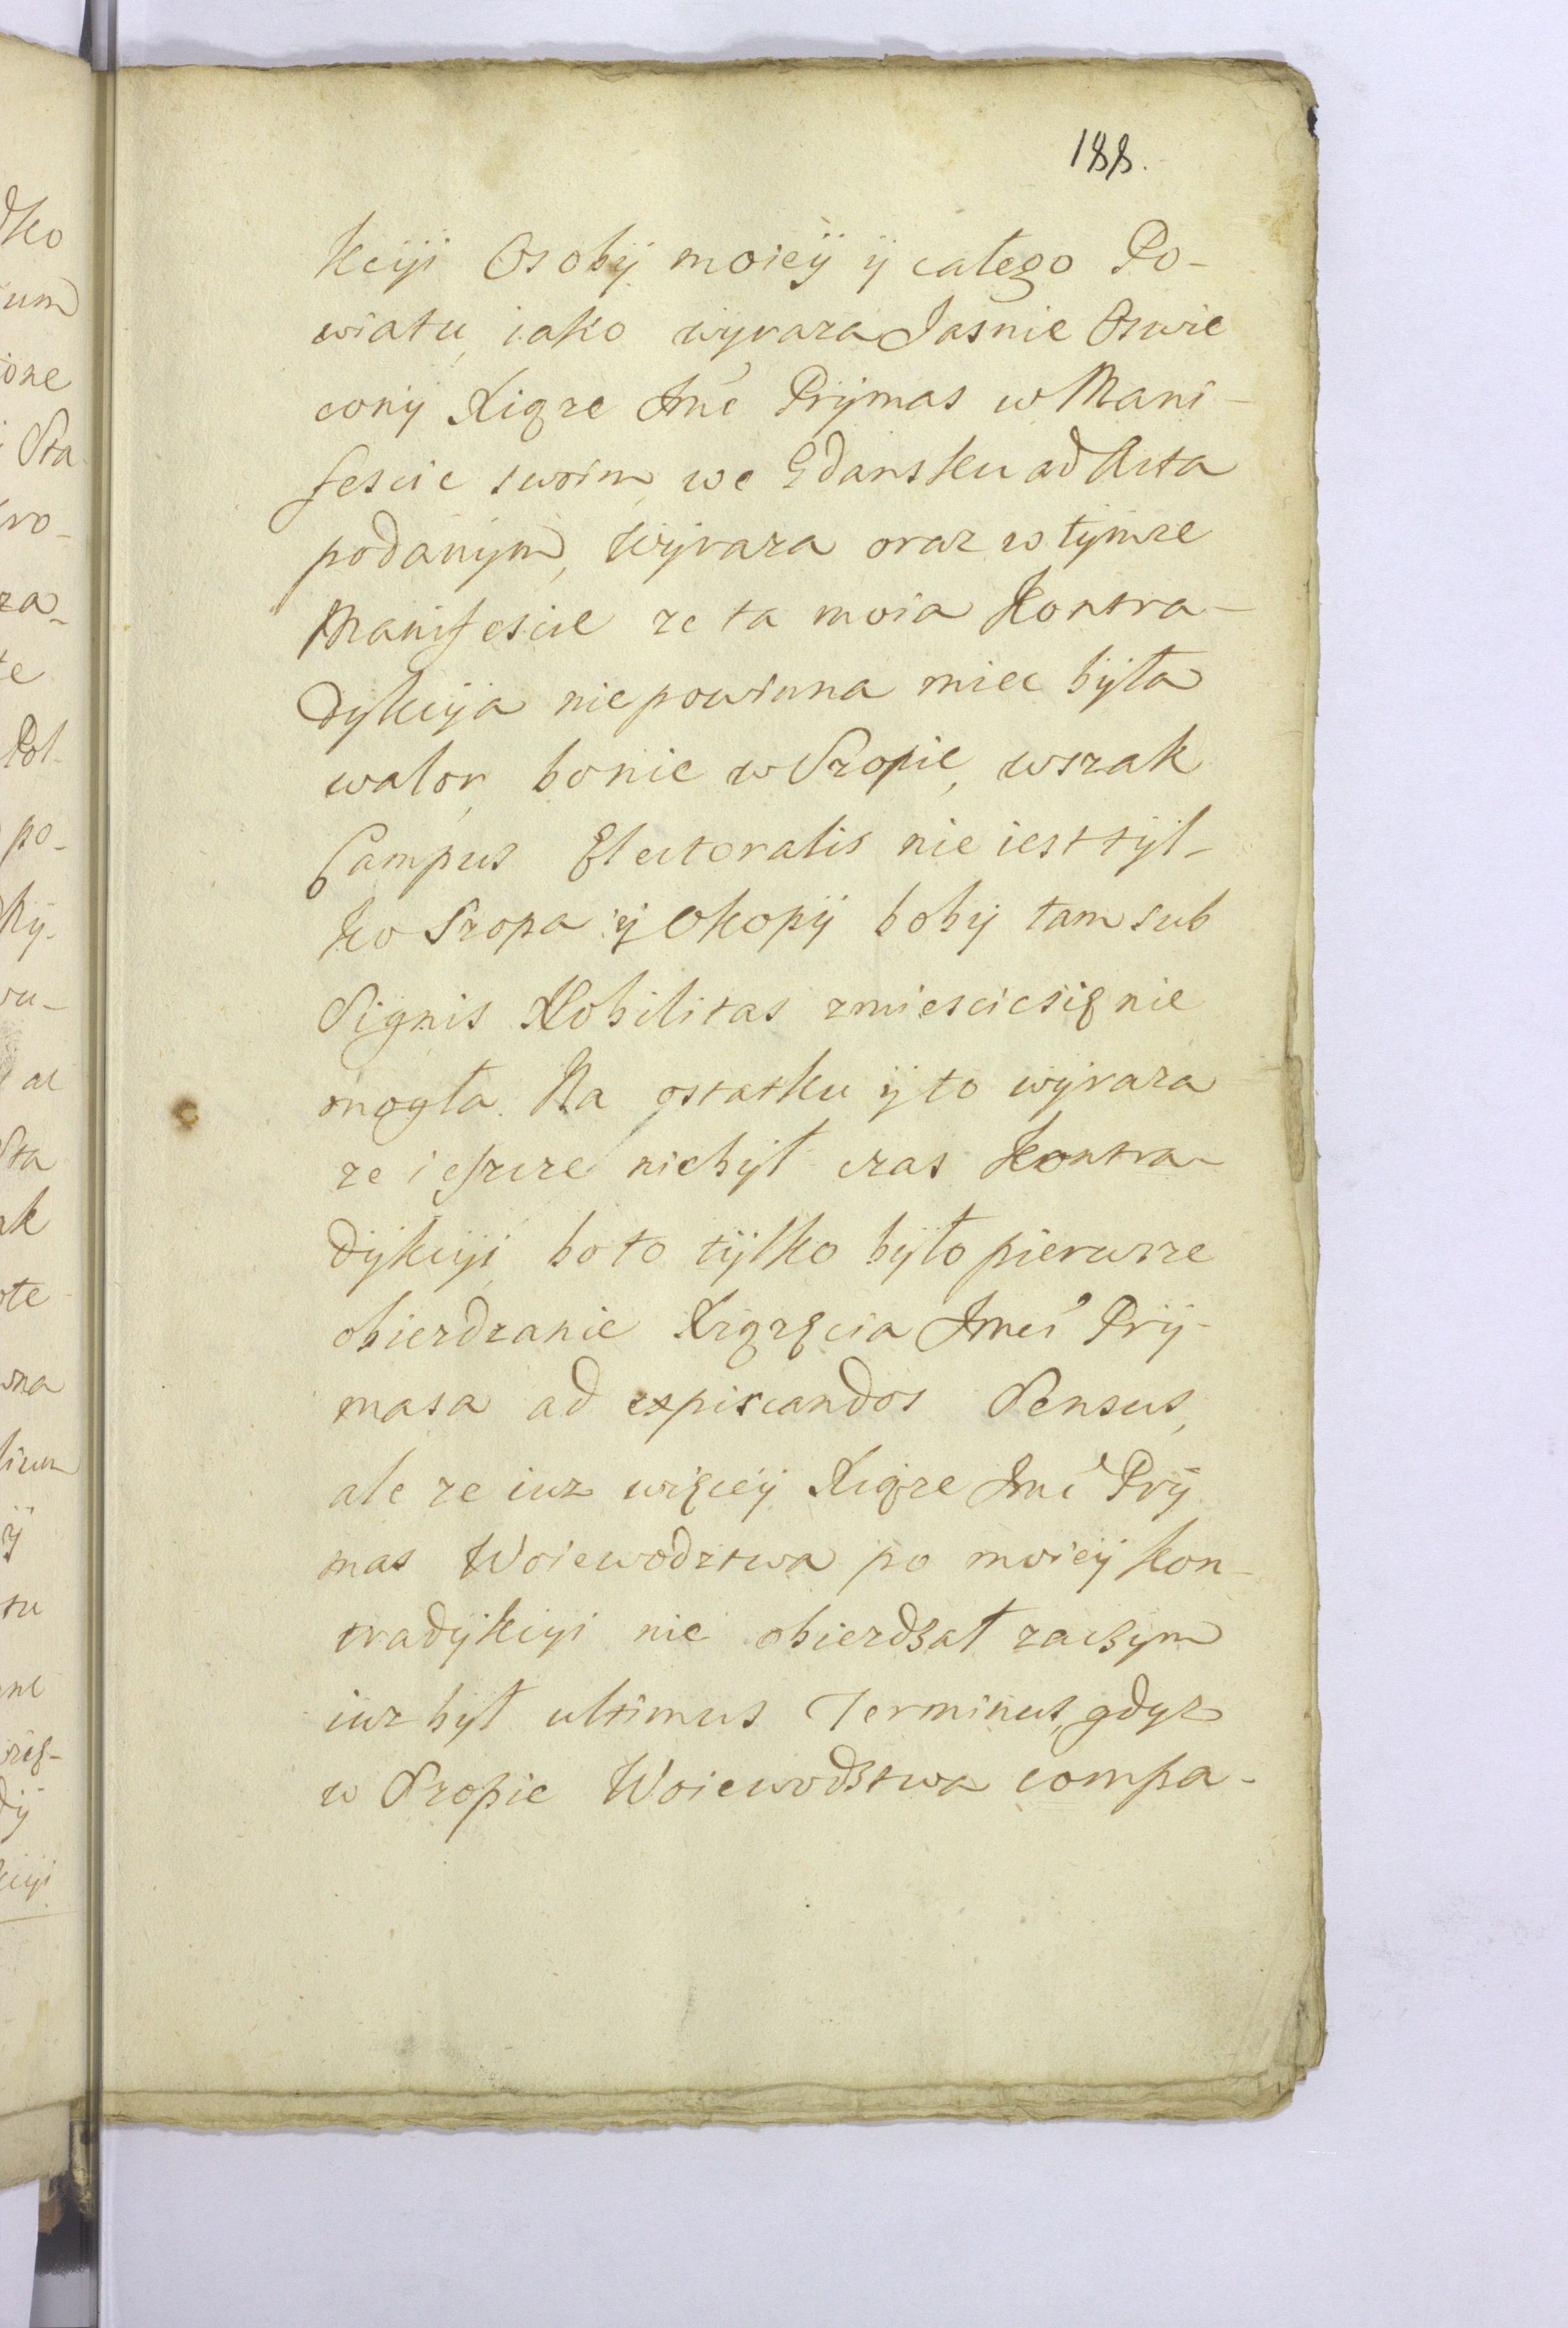 188.
kcyi Osoby moiey y całego Po-
wiatu, iako wyraza Jasnie Oswie
cony Xiąze Jmć Prymas w Mani-
fescie swoim we Gdansku ad Acta
podanym, wyraza oraz w tymze
Manifescie ze ta moia Kontra-
dykcyja nie powinna miec była
walor, bo nie w Szopie, wszak
Campus Electoralis nie iest tyl-
ko Szopa y Okopy boby tam sub
Signis Nobilitas zmiescic się nie
mogła. Na ostatku y to wyraza
ze ieszcze nie był czas Kontra-
dykcyi, bo to tylko było pierwsze
obiezdzanie Xiązęcia Jmci Pry-
masa ad expiscandos Sensus,
ale ze iuz więcey Xiąze Jmć Pry
mas Woiewodztwa po moiey kon-
tradykcyi nie obiezdzał zaczym
iuz był ultimus Terminus, gdyz
w Szopie Woiewodztwa compa-
dko
um
ione
Sta
ro-
za-
te
Pol-
po-
ky-
wu-
ac
Sta
ak
ote
wna
lium
y
tu
ne
szę-
dy
kcyi